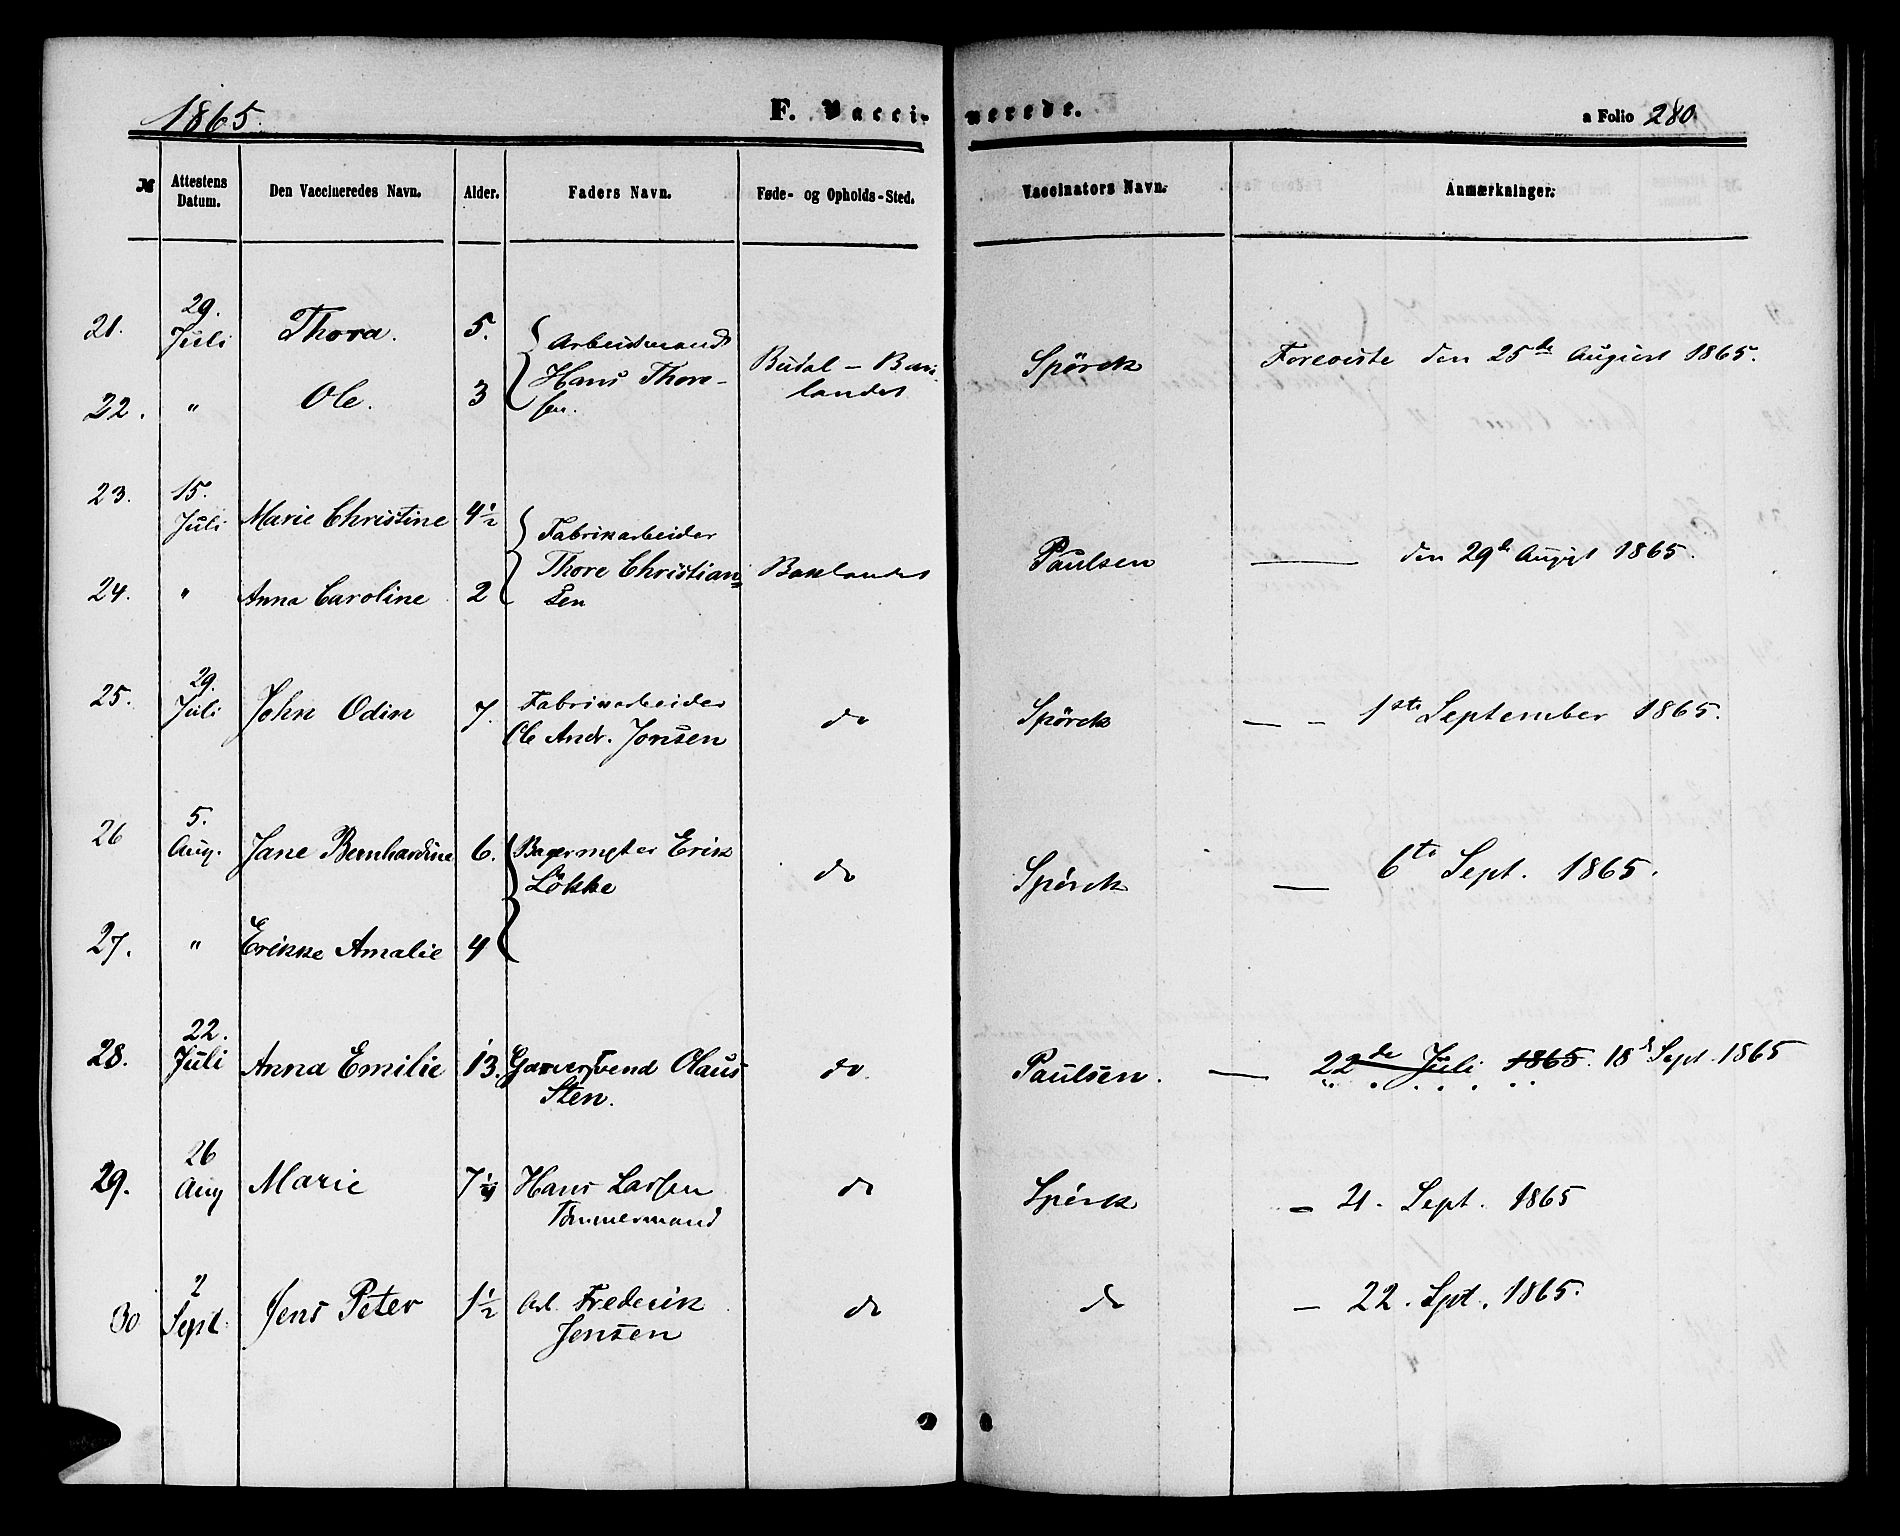 1865. F. Vaccinerede. a Folio 280.
№ Attestens Datum. Den Vaccineredes Navn. Alder. Faders Navn. Føde- og Opholds-Sted. Vaccinators Navn. Anmærkninger.
21. 29. Juli Thora. 5. Arbeidsmand
22. " Ole. 3 Hans Thore-
sen. Budal - Bak-
landet Spörck Foreviste den 25de August 1865.
23. 15. Juli Marie Christine 4 1/2 Fabrikarbeider
24. " Anna Caroline 2 Thore Christian=
sen Baklandet Paulsen — den 29de August 1865.
25. 29. Juli John Odin 7. Fabrikarbeider
Ole Andr. Jonsen do Spörck — – 1ste September 1865.
26 5. Aug. Jane Bernhardine 6. Bagermester Erik
Lökke do Spörck — 6te Sept. 1865.
27. " Erikke Amalie 4
28. 22. Juli Anna Emilie 13. Garversvend Olaus
Sten. do Paulsen. — 22de Juli 1865. 18d Sept. 1865
29. 26 Aug Marie 7 1/4 Hans Larsen
Tømmermand do Spörck – 21. Sept. 1865
30 2 Sept. Jens Peter 1 1/2 Frederik
Jensen do do – 22. Spt. 1865.